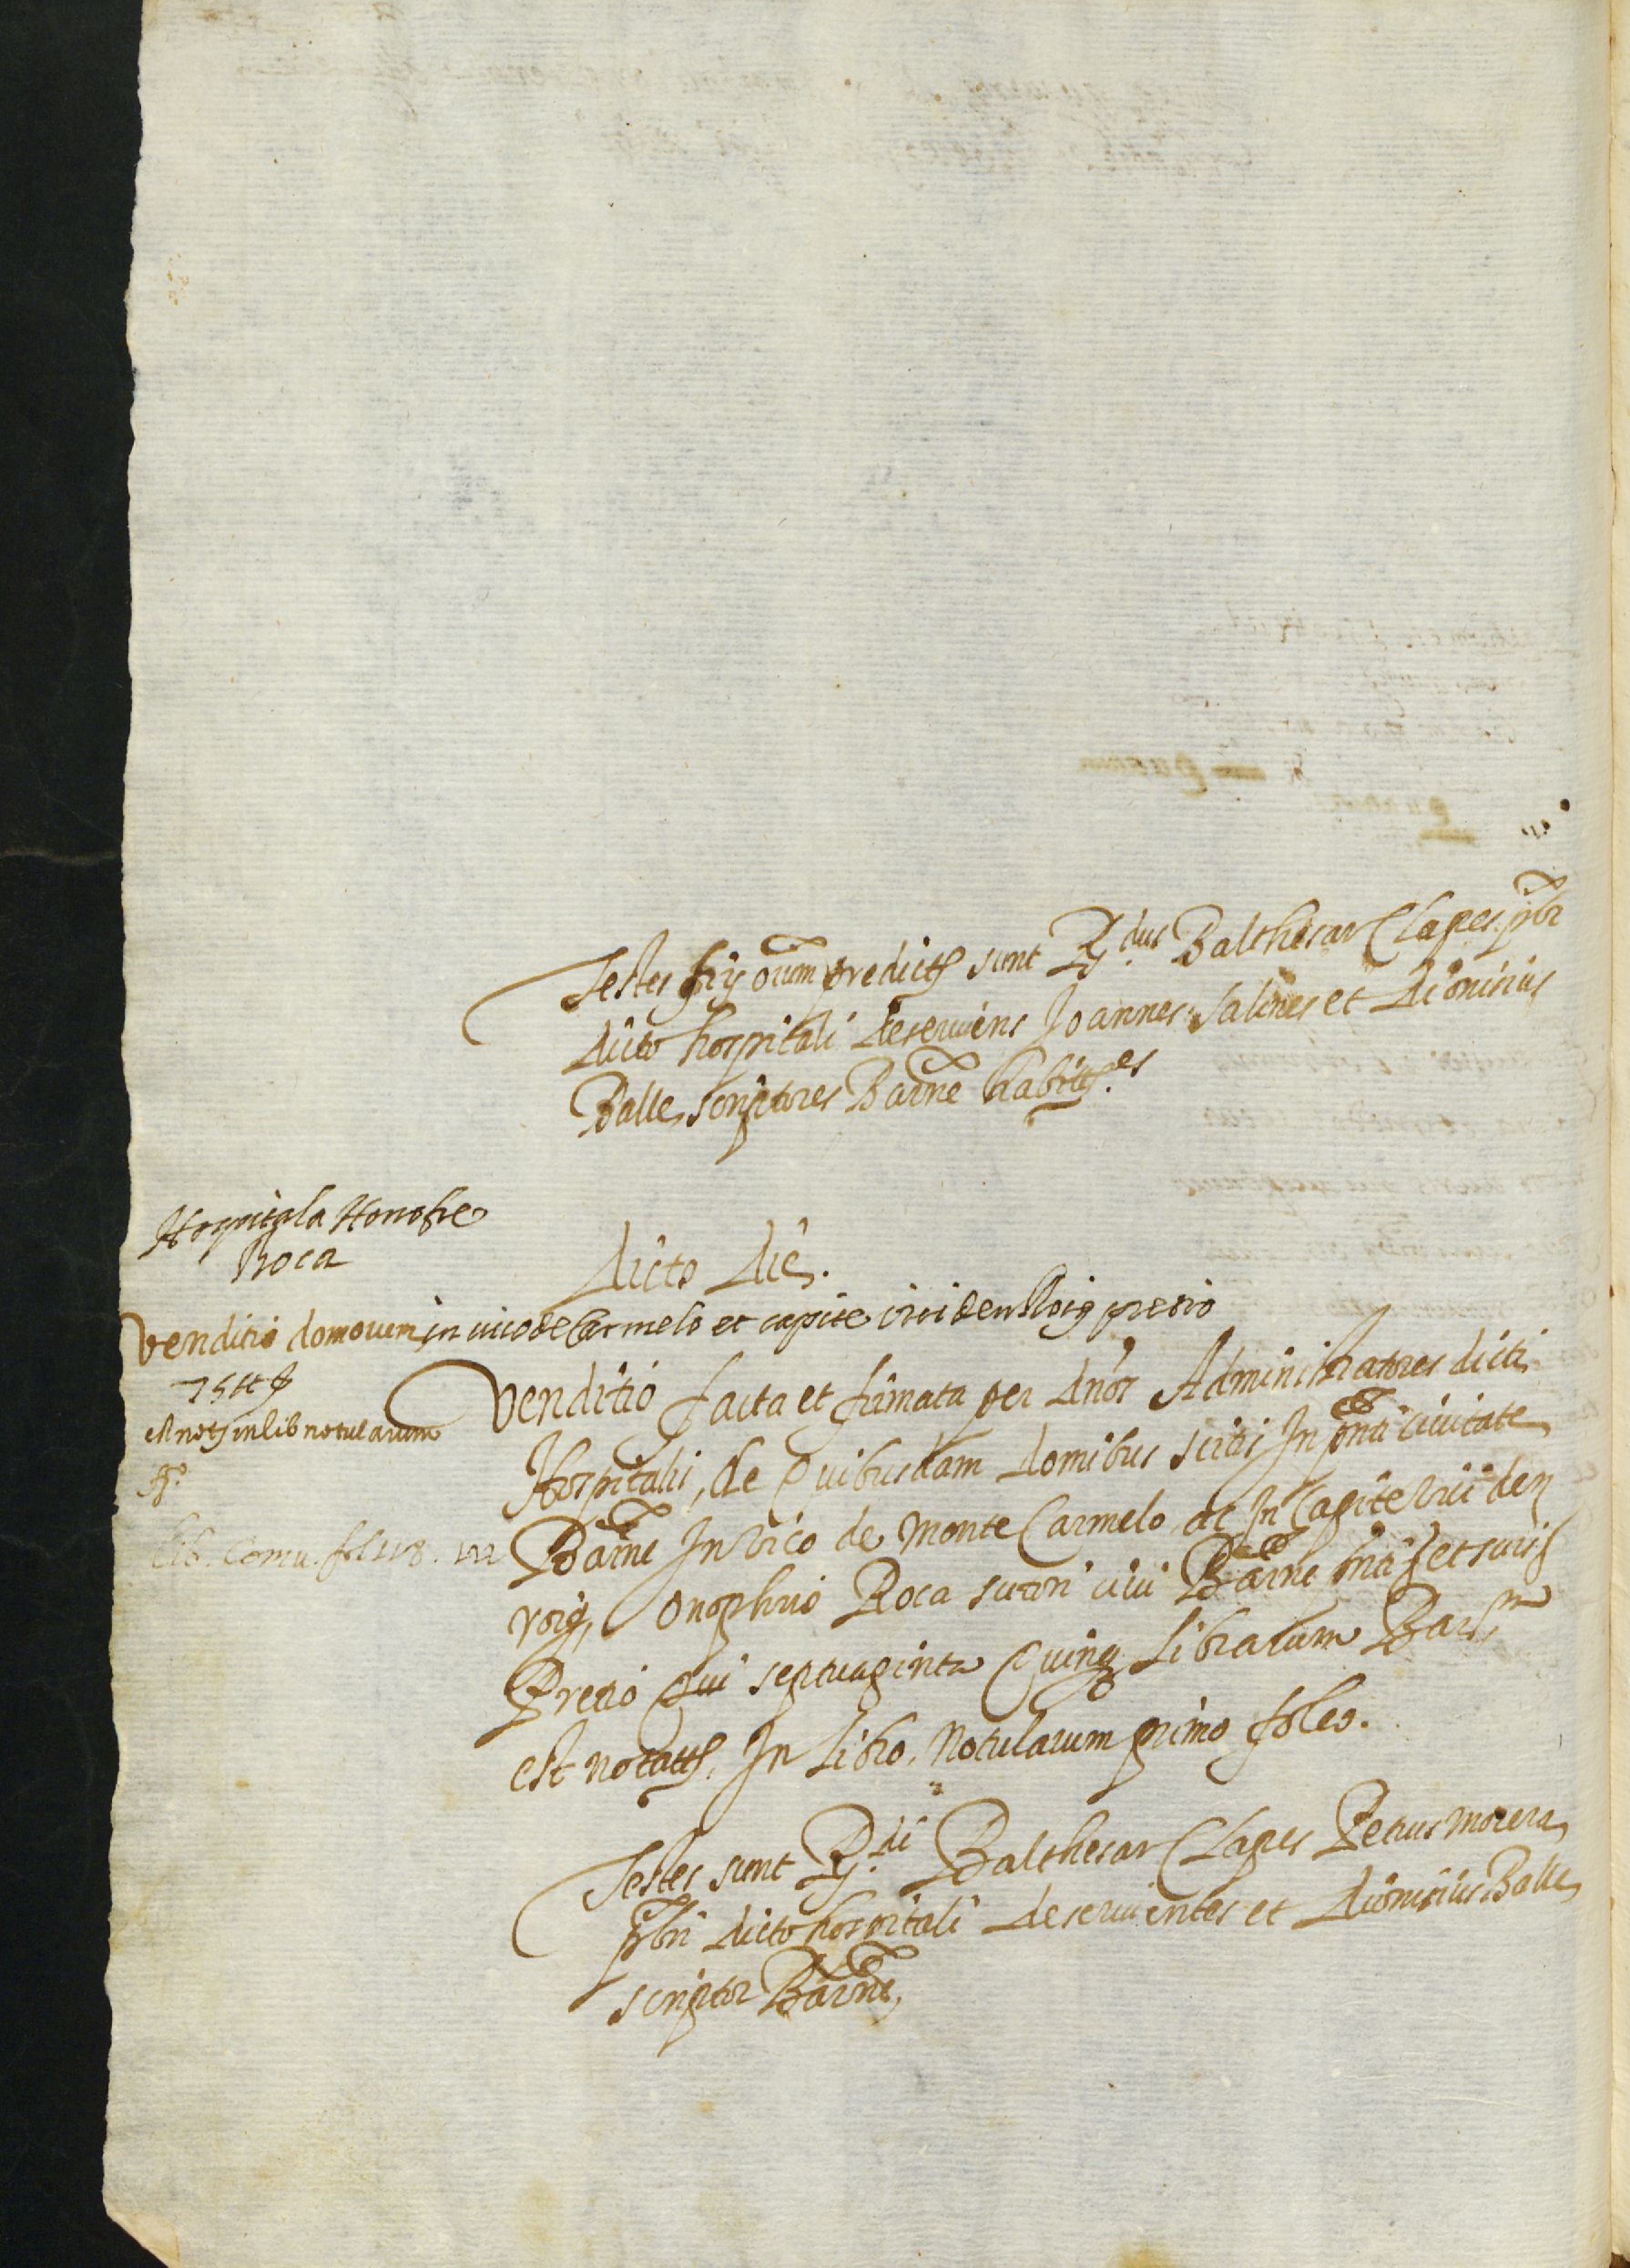 Testes hijs oium predictis sunt R.dus Balthesar Clapes pbr
dicto hospitali deserviens Joannes Salines et Dionisius
Balle scriptores Barne habitts.es
Hospital a Honofre
Roca
Dicto Die.
Venditio domorum in vico de Carmelo et capite vici den Roig precio
75 ll
est not in lib notularum
fo.
lib. comu. fol
Venditio facta et firmata per dnos Administratores dicti
Hospitalis, de Quibusdam domibus scitis In pnti civitate
Barne In vico de Monte Carmelo ac In Capite vici den
roig, Onophrio Roca sutori civi Barne et suis
Pretio Qui septuaginta Quinq Librarum Bar
est notatis. In Libro. Notularum primo foleo.
Testes sunt R.di Balthesar Clapes Petrus Morera
pbri dicto hospitali deservientes et Dionisius Balle
scriptor Barne